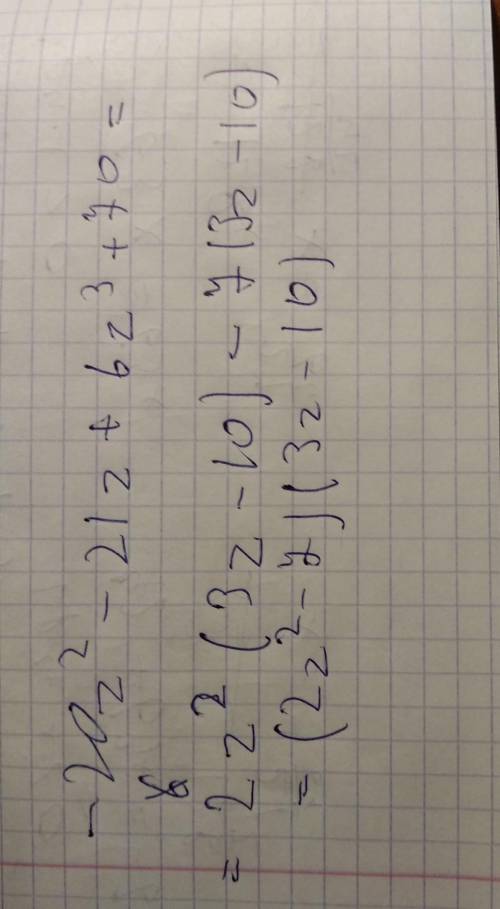 -20z² - 21z + 6z³ + 70 =
= 2z² (3z - 10) - 7 (3z - 10)
= (2z² - 7) (3z - 10)